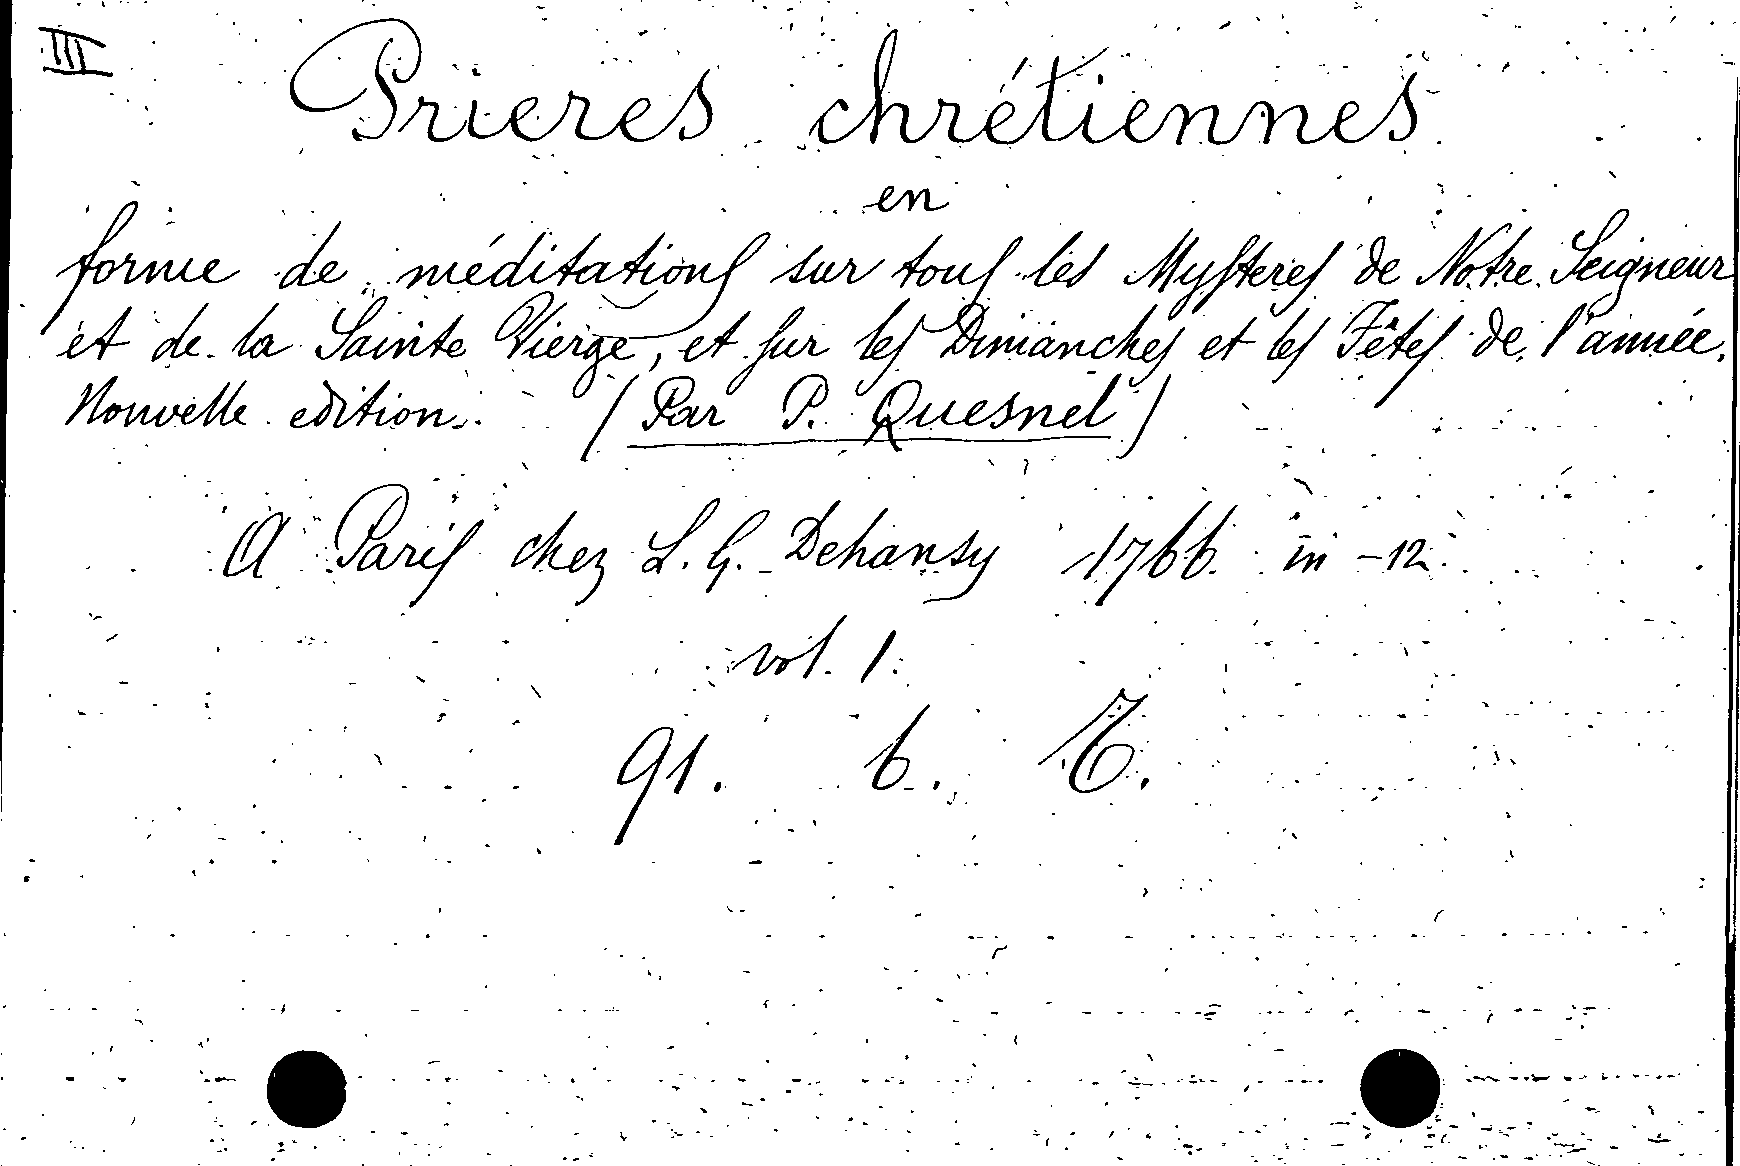 III
Prieres chrétiennes
en
forme de méditations sur tous les Mysteres de Notre Seigneur
et de la Sainte Vierge, et sur les Dimanches et les Fêtes de l'année.
Nouvelle edition. (Par P. Quesnel)
A Paris chez L. G. Dehansy 1766. in-12.
vol. 1.
91. b.